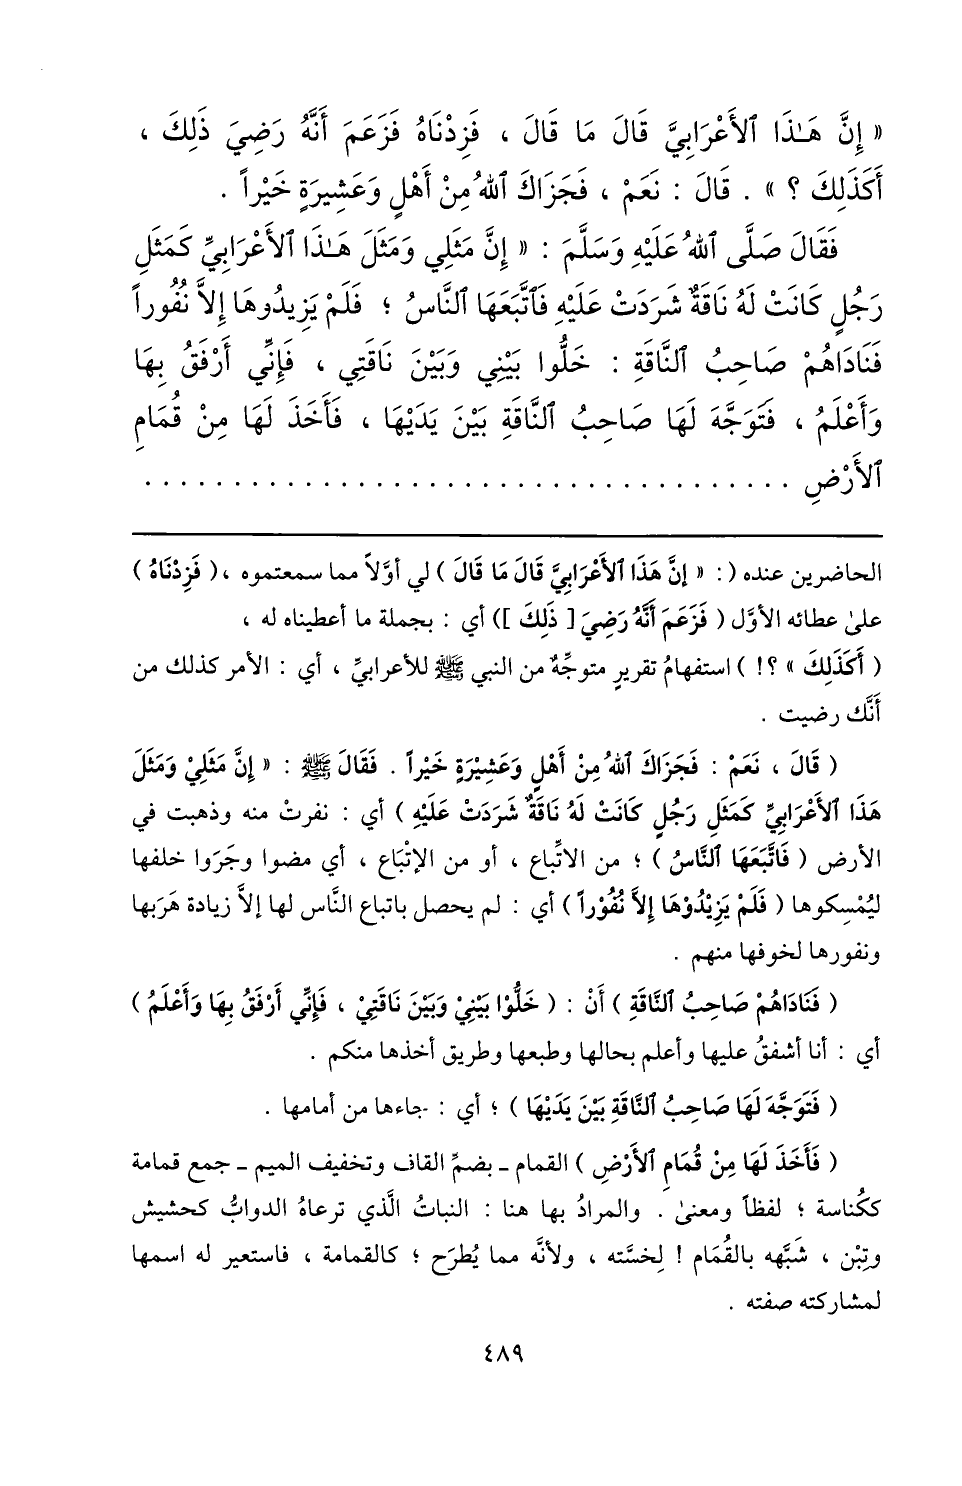 « إِنَّ هَـٰذَا ٱلأَعْرَابِيَّ قَالَ مَا قَالَ ، فَزِدْنَاهُ فَزَعَمَ أَنَّهُ رَضِيَ ذَلِكَ ،
أَكَذَلِكَ ؟ » . قَالَ : نَعَمْ ، فَجَزَاكَ ٱللهُ مِنْ أَهْلٍ وَعَشِيرَةٍ خَيْراً .
فَقَالَ صَلَّى ٱللهُ عَلَيْهِ وَسَلَّمَ : « إِنَّ مَثَلِي وَمَثَلَ هَـٰذَا ٱلأَعْرَابِيِّ كَمَثَلِ
رَجُلٍ كَانَتْ لَهُ نَاقَةٌ شَرَدَتْ عَلَيْهِ فَٱتَّبَعَهَا ٱلنَّاسُ ؛ فَلَمْ يَزِيدُوهَا إِلاَّ نُفُوراً
فَنَادَاهُمْ صَاحِبُ ٱلنَّاقَةِ : خَلُّوا بَيْنِي وَبَيْنَ نَاقَتِي ، فَإِنِّي أَرْفَقُ بِهَا
وَأَعْلَمُ ، فَتَوَجَّهَ لَهَا صَاحِبُ ٱلنَّاقَةِ بَيْنَ يَدَيْهَا ، فَأَخَذَ لَهَا مِنْ قُمَامِ
ٱلأَرْضِ . . . . . . . . . . . . . . . . . . . . . . . . . . . . . . . . . . . .
الحاضرين عنده (: « إِنَّ هَذَا ٱلأَعْرَابِيَّ قَالَ مَا قَالَ ) لي أوّلاً مما سمعتموه ،( فَزِدْنَاهُ )
علىٰ عطائه الأوّل ( فَزَعَمَ أَنَّهُ رَضِيَ [ ذَلِكَ ]) أي : بجملة ما أعطيناه له ،
( أَكَذَلِكَ » ؟! ) استفهامُ تقريرٍ متوجِّهٌ من النبي ﷺ للأعرابيِّ ، أي : الأمر كذلك من
أَنَّك رضيت .
( قَالَ ، نَعَمْ : فَجَزَاكَ ٱللهُ مِنْ أَهْلٍ وَعَشِيْرَةٍ خَيْراً . فَقَالَ ﷺ : « إِنَّ مَثَلِيْ وَمَثَلَ
هَذَا ٱلأَعْرَابِيِّ كَمَثَلِ رَجُلٍ كَانَتْ لَهُ نَاقَةٌ شَرَدَتْ عَلَيْهِ ) أي : نفرتْ منه وذهبت في
الأرض ( فَاتَّبَعَهَا ٱلنَّاسُ ) ؛ من الاتِّباع ، أو من الإِتْبَاع ، أي مضوا وجَرَوا خلفها
ليُمْسِكوها ( فَلَمْ يَزِيْدُوْهَا إِلاَّ نُفُوْراً ) أي : لم يحصل باتباع النَّاس لها إلاَّ زيادة هَرَبها
ونفورها لخوفها منهم .
( فَنَادَاهُمْ صَاحِبُ ٱلنَّاقَةِ ) أَنْ : ( خَلُّوْا بَيْنِيْ وَبَيْنَ نَاقَتِيْ ، فَإِنِّي أَرْفَقُ بِهَا وَأَعْلَمُ )
أي : أنا أشفقُ عليها وأعلم بحالها وطبعها وطريق أخذها منكم .
( فَتَوَجَّهَ لَهَا صَاحِبُ ٱلنَّاقَةِ بَيْنَ يَدَيْهَا ) ؛ أي : جاءها من أمامها .
( فَأَخَذَ لَهَا مِنْ قُمَامِ ٱلأَرْضِ ) القمام ـ بضمِّ القاف وتخفيف الميم ـ جمع قمامة
ككُناسة ؛ لفظاً ومعنىٰ . والمرادُ بها هنا : النباتُ الَّذي ترعاهُ الدوابُّ كحشيش
وتِبْن ، شَبَّهه بالقُمَام ! لِخسَّته ، ولأنَّه مما يُطرَح ؛ كالقمامة ، فاستعير له اسمها
لمشاركته صفته .
٤٨٩